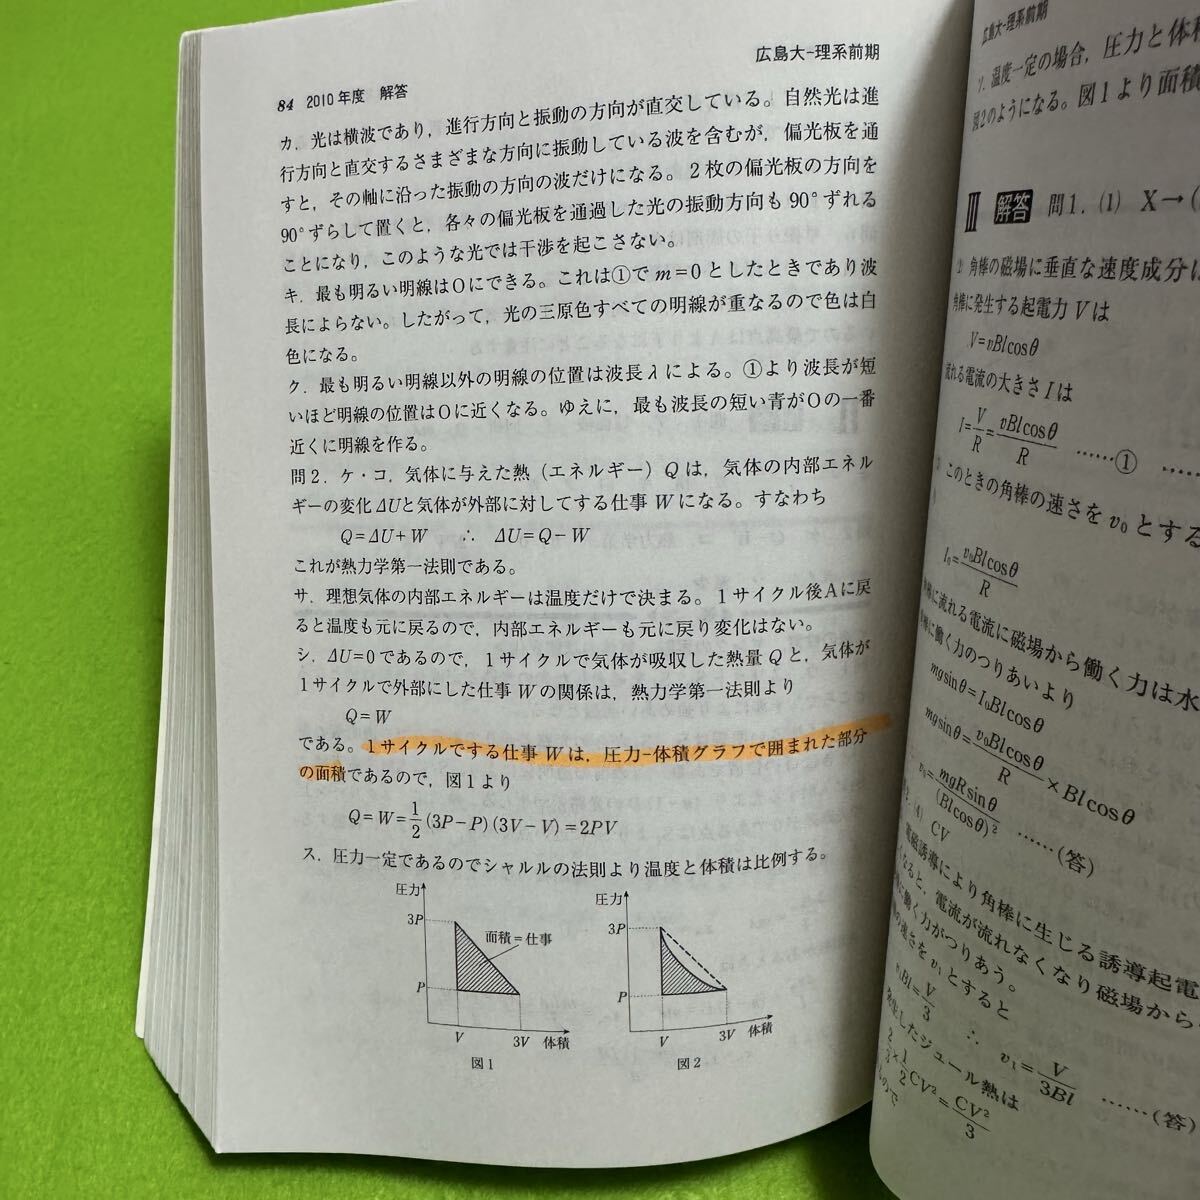 広島大-理系前期
84 2010年度 解答
カ．光は横波であり，進行方向と振動の方向が直交している。自然光は進
行方向と直交するさまざまな方向に振動している波を含むが，偏光板を通
すと，その軸に沿った振動の方向の波だけになる。2枚の偏光板の方向を
90°ずらして置くと，各々の偏光板を通過した光の振動方向も90°ずれる
ことになり，このような光では干渉を起こさない。
キ．最も明るい明線はOにできる。これは①でm=0としたときであり波
長によらない。したがって，光の三原色すべての明線が重なるので色は白
色になる。
ク．最も明るい明線以外の明線の位置は波長λによる。①より波長が短
いほど明線の位置はOに近くなる。ゆえに，最も波長の短い青がOの一番
近くに明線を作る。
問2．ケ・コ．気体に与えた熱（エネルギー）Qは，気体の内部エネル
ギーの変化ΔUと気体が外部に対してする仕事Wになる。すなわち
Q=ΔU+W ∴ ΔU=Q-W
これが熱力学第一法則である。
サ．理想気体の内部エネルギーは温度だけで決まる。1サイクル後Aに戻
ると温度も元に戻るので，内部エネルギーも元に戻り変化はない。
シ．ΔU=0であるので，1サイクルで気体が吸収した熱量Qと，気体が
1サイクルで外部にした仕事Wの関係は，熱力学第一法則より
Q=W
である。1サイクルでする仕事Wは，圧力-体積グラフで囲まれた部分
の面積であるので，図1より
Q=W=1/2(3P-P)(3V-V)=2PV
ス．圧力一定であるのでシャルルの法則より温度と体積は比例する。
圧力
3P
面積=仕事
P
V 3V 体積
図1
圧力
3P
P
V 3V 体積
図2
広島大-理系前期
ソ．温度一定の場合，圧力と体積
図2のようになる。図1より面積
III 解答 問1．(1) X→(
(2) 角棒の磁場に垂直な速度成分に
角棒に発生する起電力Vは
V=vBlcosθ
流れる電流の大きさIは
I=V/R=vBlcosθ/R ……①
このときの角棒の速さをv₀とする
I₀=v₀Blcosθ/R
に流れる電流に磁場から働く力は水
に働く力のつりあいより
mgsinθ=I₀Blcosθ
mgsinθ=v₀Blcosθ/R×Blcosθ
v₀=mgRsinθ/(Blcosθ)² ……(答)
(4) CV
電磁誘導により角棒に生じる誘導起電
なると，電流が流れなくなり磁場から
に働く力がつりあう。
の速さをv₁とすると
v₁Bl=V/3 ∴ v₁=V/3Bl ……(答)
発生したジュール熱は
2/3×1/2CV²=CV²/3
ので